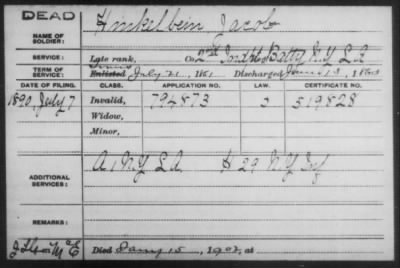 DEAD
NAME OF SOLDIER: Hinkelbein Jacob
SERVICE: Late rank, Co. 2nd Indpt Batty N.Y. L.A.
TERM OF SERVICE: Enlisted July 21, 1861 Discharged June 13, 1863
DATE OF FILING. CLASS. APPLICATION NO. LAW. CERTIFICATE NO.
1890, July 7 Invalid, 794873 3 519828
Widow,
Minor,
ADDITIONAL SERVICES: A 1 N.Y. L.A. H 29 N.Y. Inf
REMARKS:
Died Jany 15, 1902, at